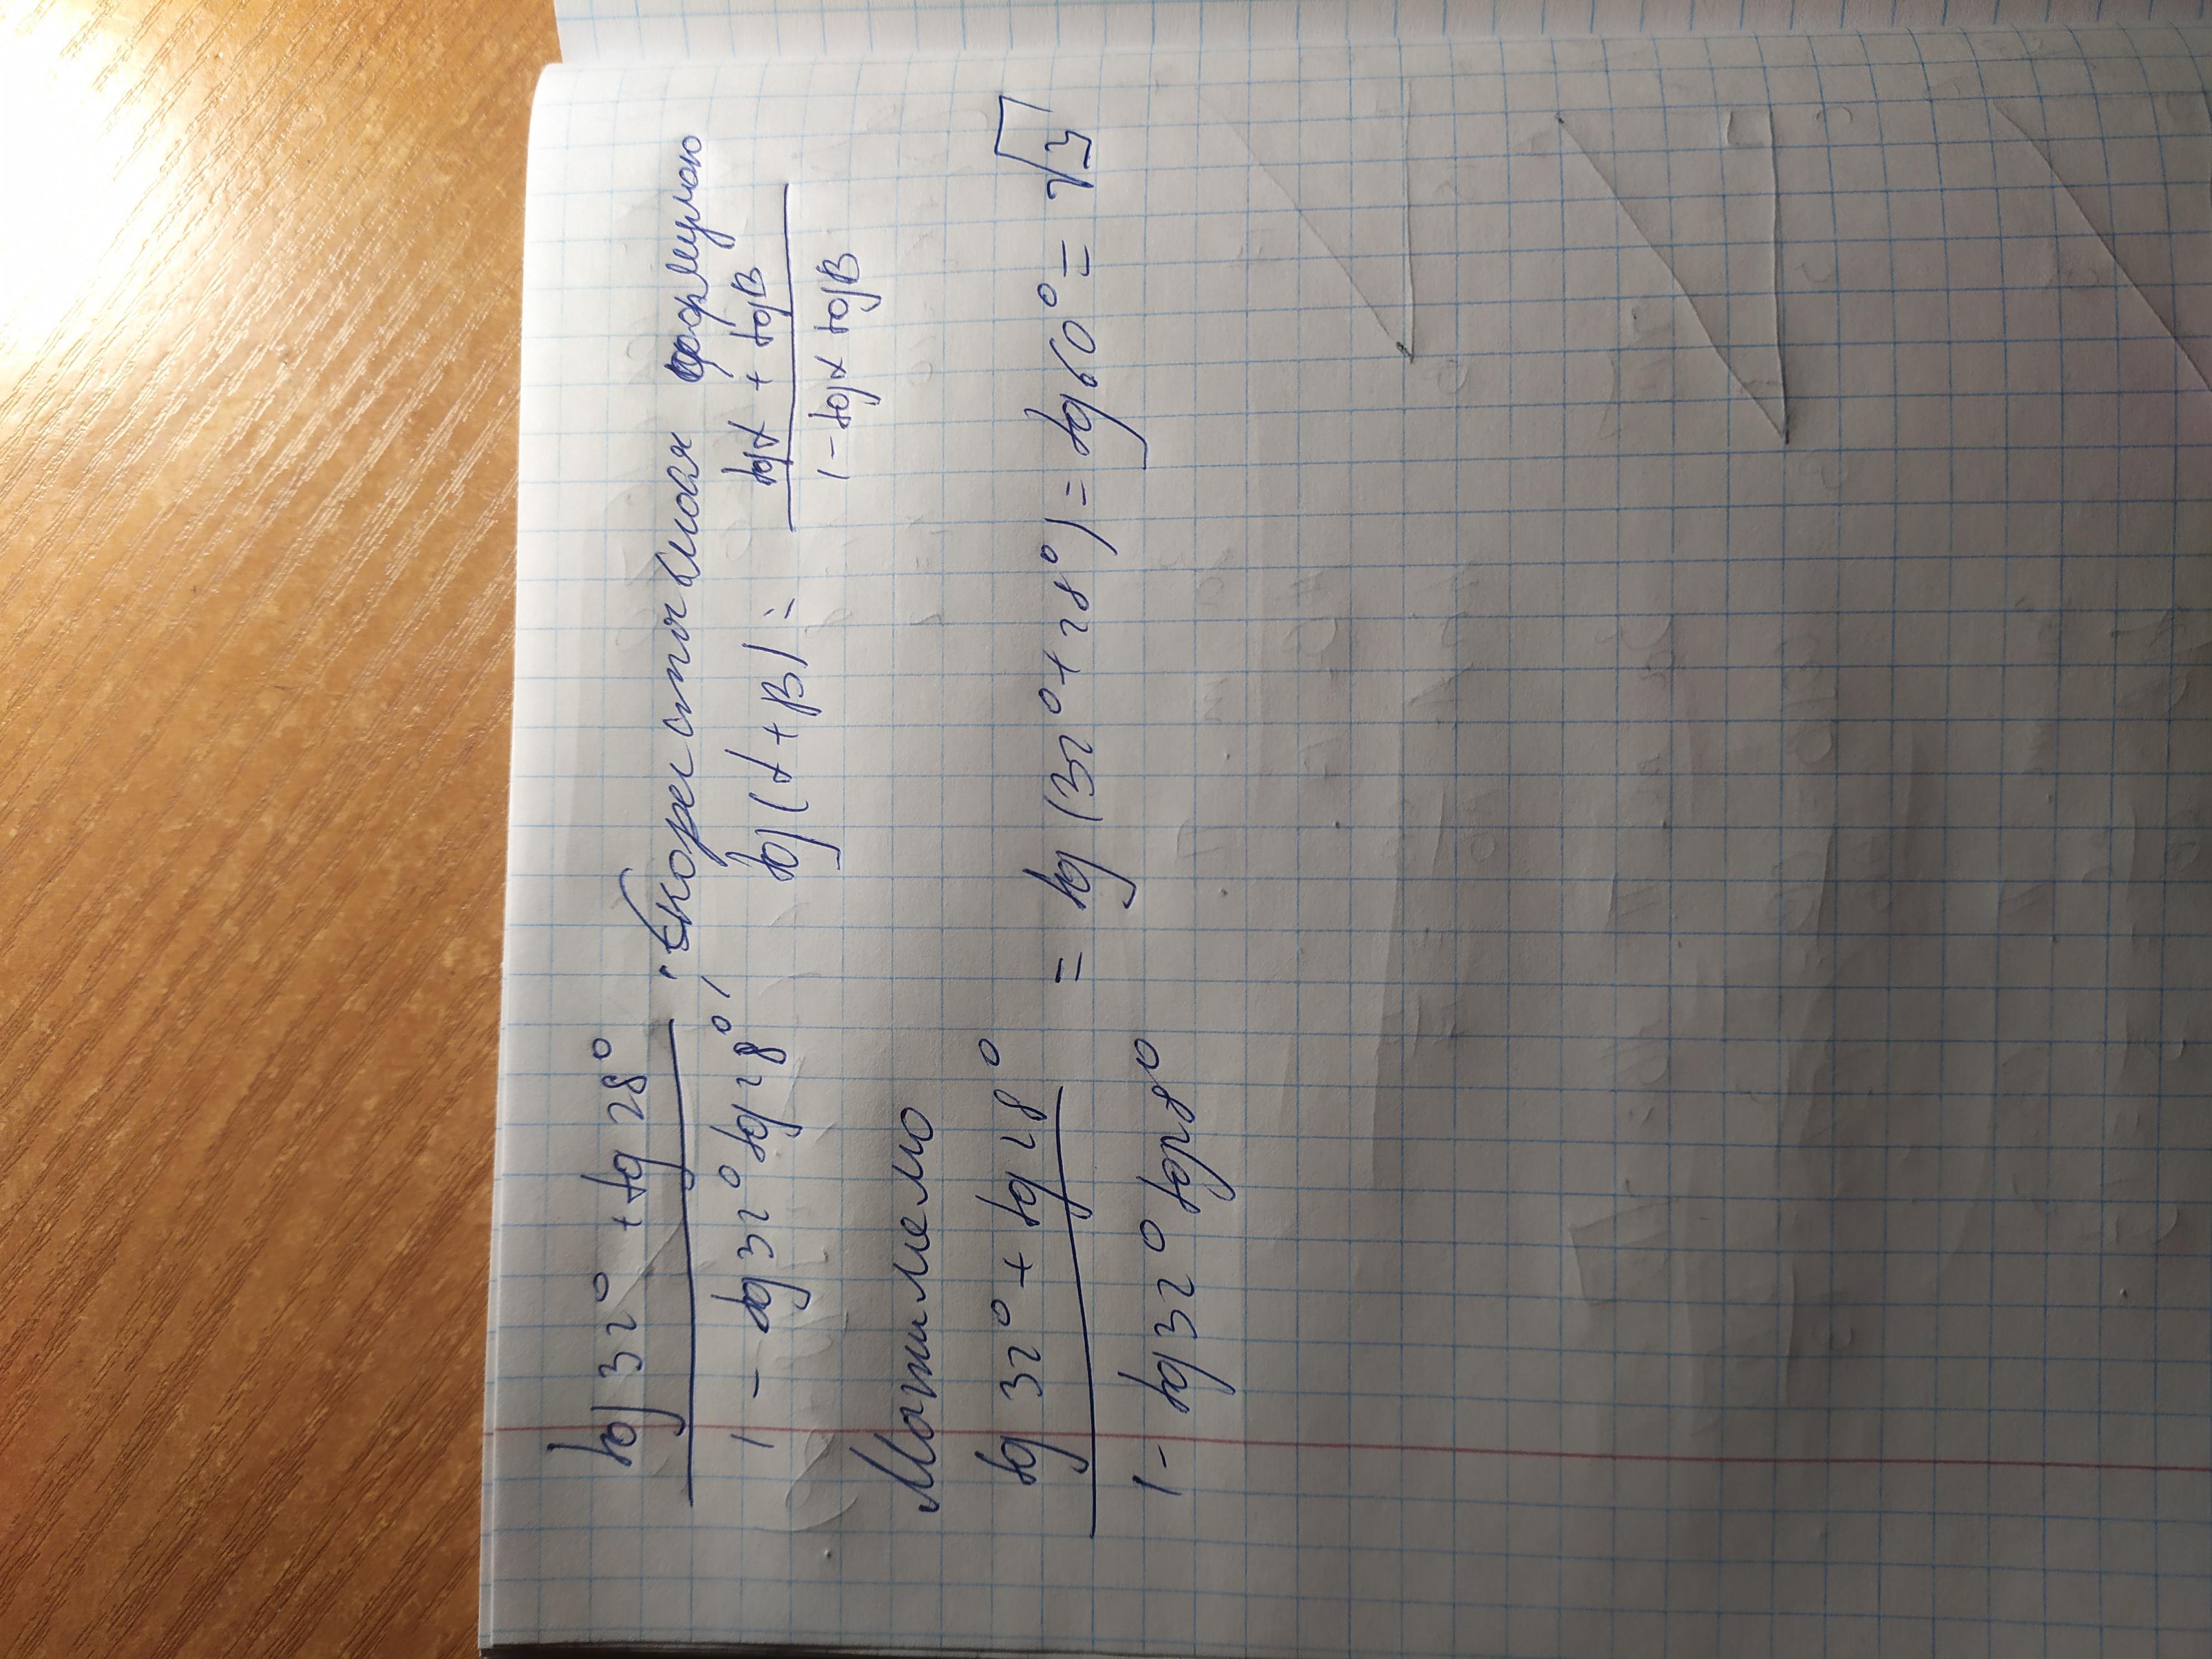 tg 32° + tg 28°
1 - tg 32° tg 28° ; Скористаємось формулою
tg(α + β) = tgα + tgβ
1 - tgα tgβ
Матимемо
tg 32° + tg 28° = tg(32° + 28°) = tg 60° = √3
1 - tg 32° tg 28°